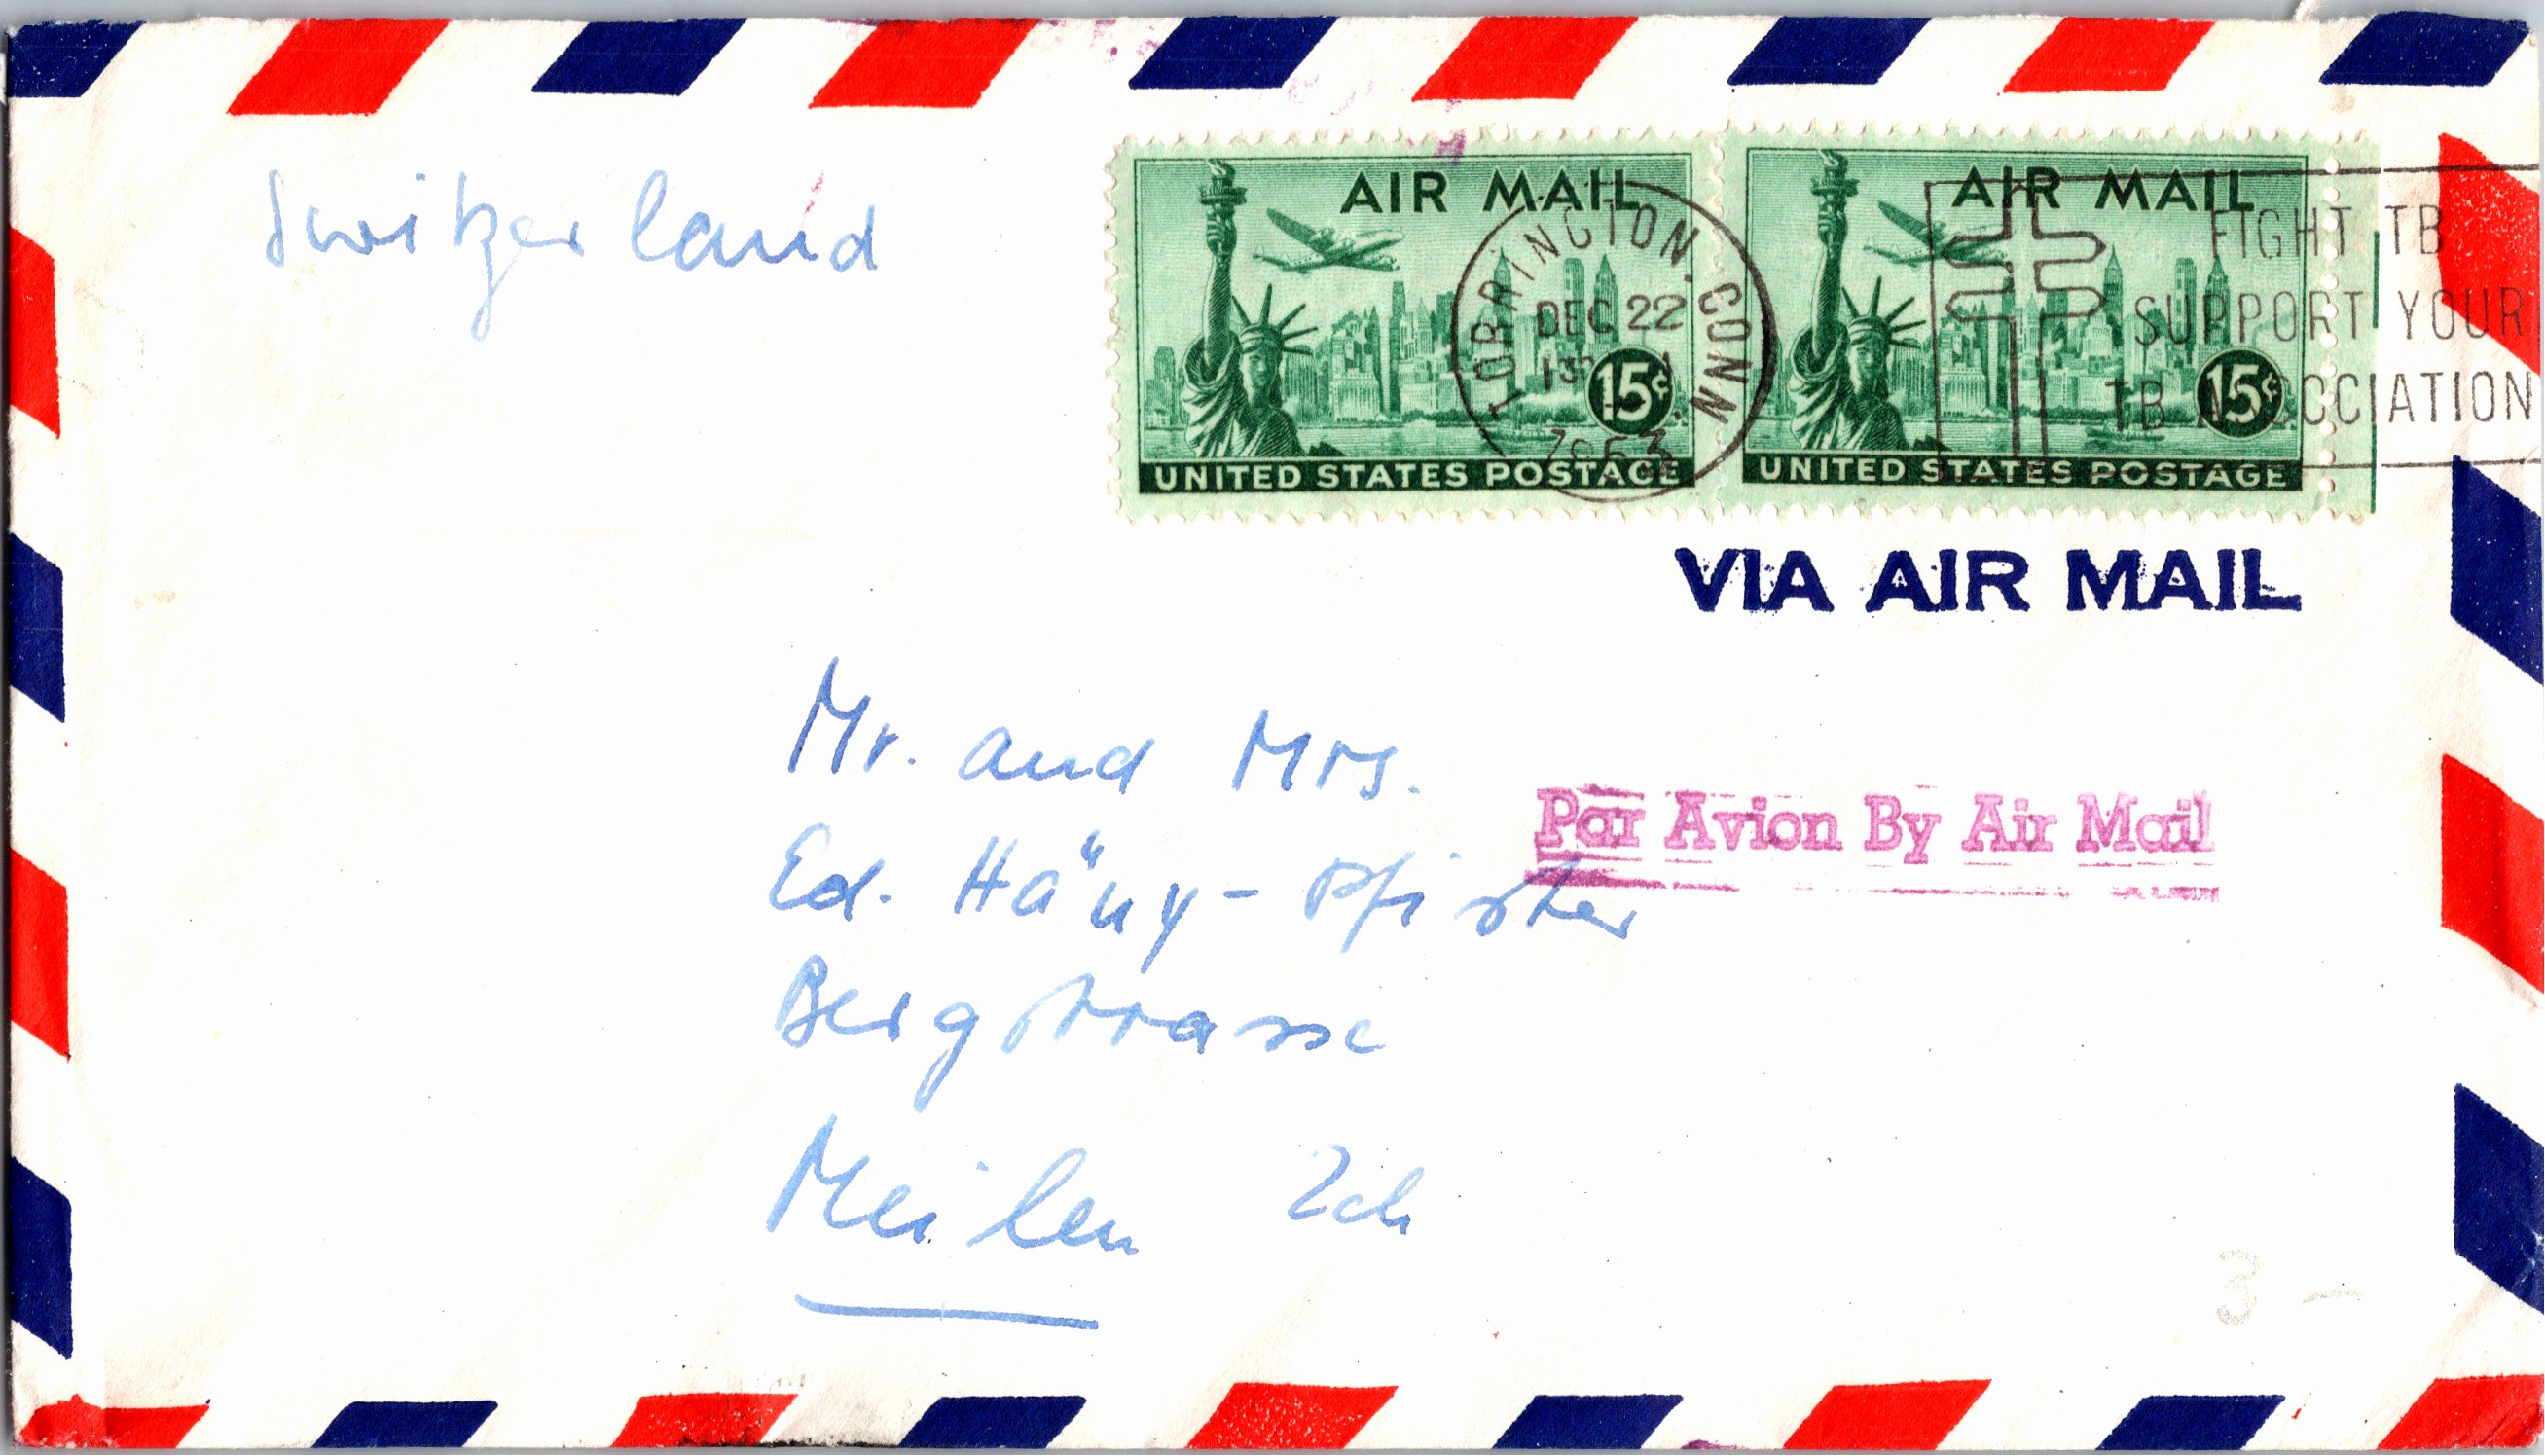 Switzerland
AIR MAIL
15¢
UNITED STATES POSTAGE
AIR MAIL
15¢
UNITED STATES POSTAGE
TORRINGTON, CONN
DEC 22
FIGHT TB
SUPPORT YOUR
TB ASSOCIATION
VIA AIR MAIL
Mr. and Mrs.
Par Avion By Air Mail
Ed. Häny-Pfister
Bergstrasse
Meilen Zch
3 -